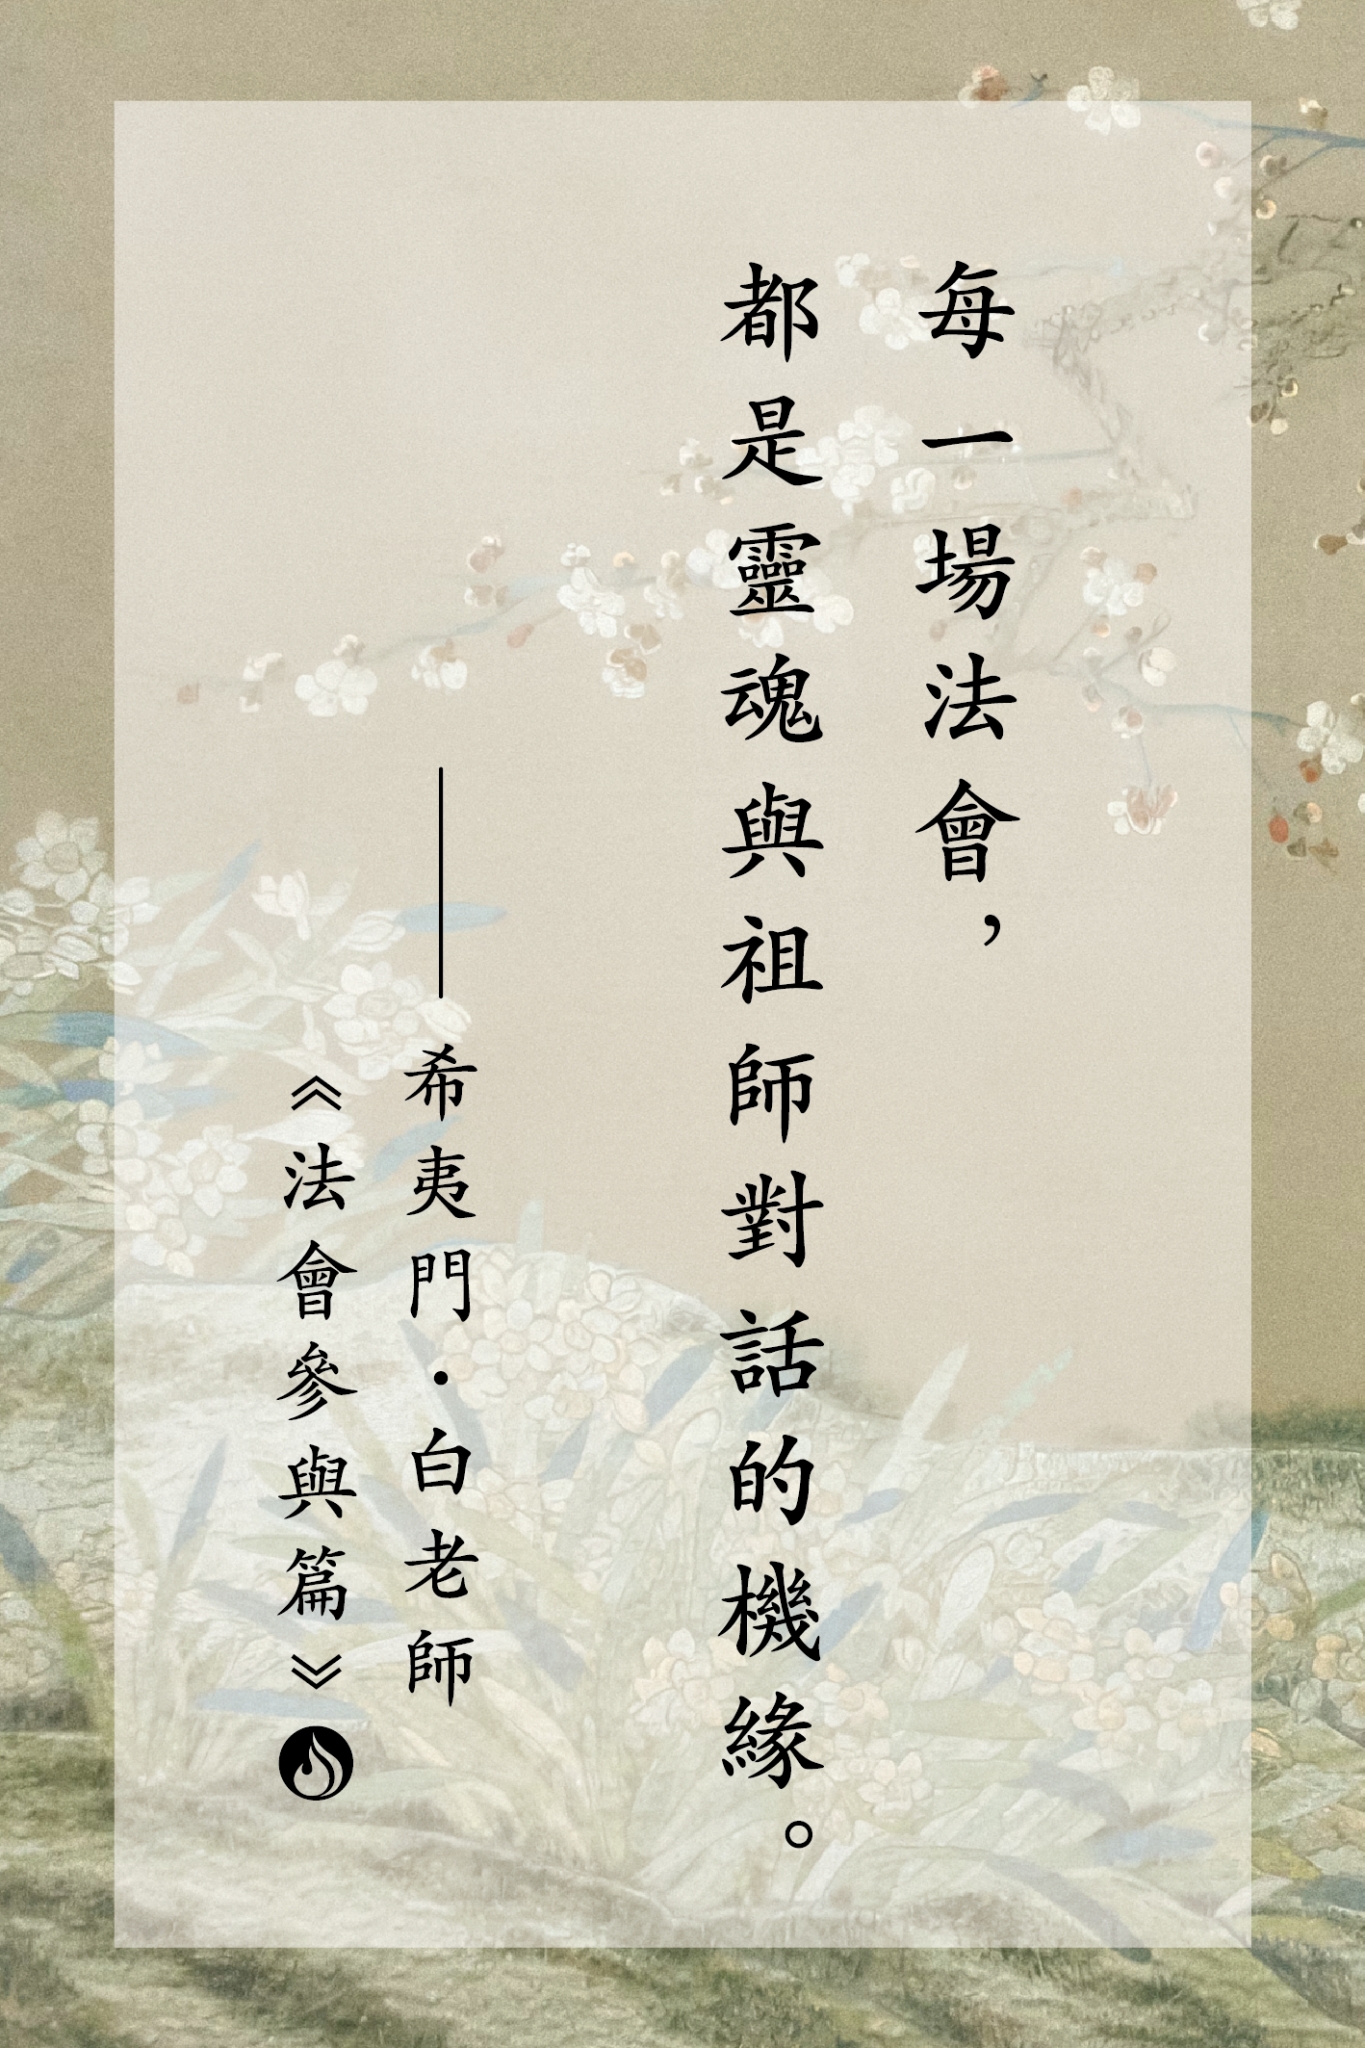 每一場法會，
都是靈魂與祖師對話的機緣。
——希夷門·白老師
《法會參與篇》